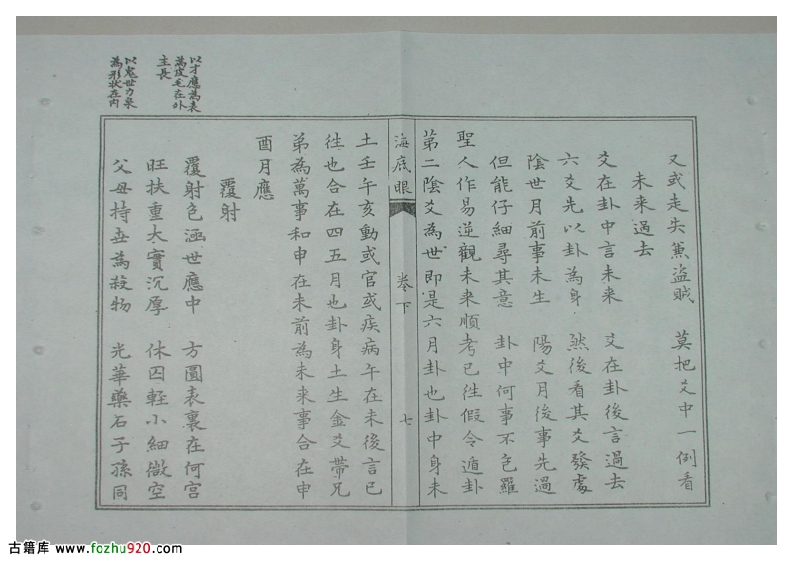 又或走失兼盜賊　莫把爻中一例看
未来過去
爻在卦中言未来　爻在卦後言過去
六爻先以卦為身　然後看其爻發處
陰世月前事未生　陽爻月後事先過
但能仔細尋其意　卦中何事不包羅
聖人作易逆觀未来順考已徃假令遁卦
第二陰爻為世即是六月卦也卦中身未
海底眼　卷下　七
土壬午亥動或官或疾病午在未後言已
徃也合在四五月也卦身土生金爻帶兄
弟為萬事和申在未前為未来事合在申
酉月應
覆射
覆射包涵世應中　方圓表裏在何宮
旺扶重大實沉厚　休囚輕小細微空
父母持世為殺物　光華藥石子孫同
以才應為表
為皮毛在外
主長
以鬼世為裏
為形状在内
古籍库 www.fozhu920.com